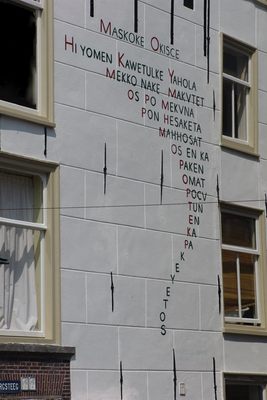 MASKOKE OKISCE
HIYOMEN KAWETULKE YAHOLA
MEKKO NAKE MAKVTET
OS PO MEKVNA
PON HESAKETA
MAHHOSAT
OS EN KA
PAKEN
OMAT
POCV
TUNE
KA
PA
K
E
Y
ETOS
RGSTEEG